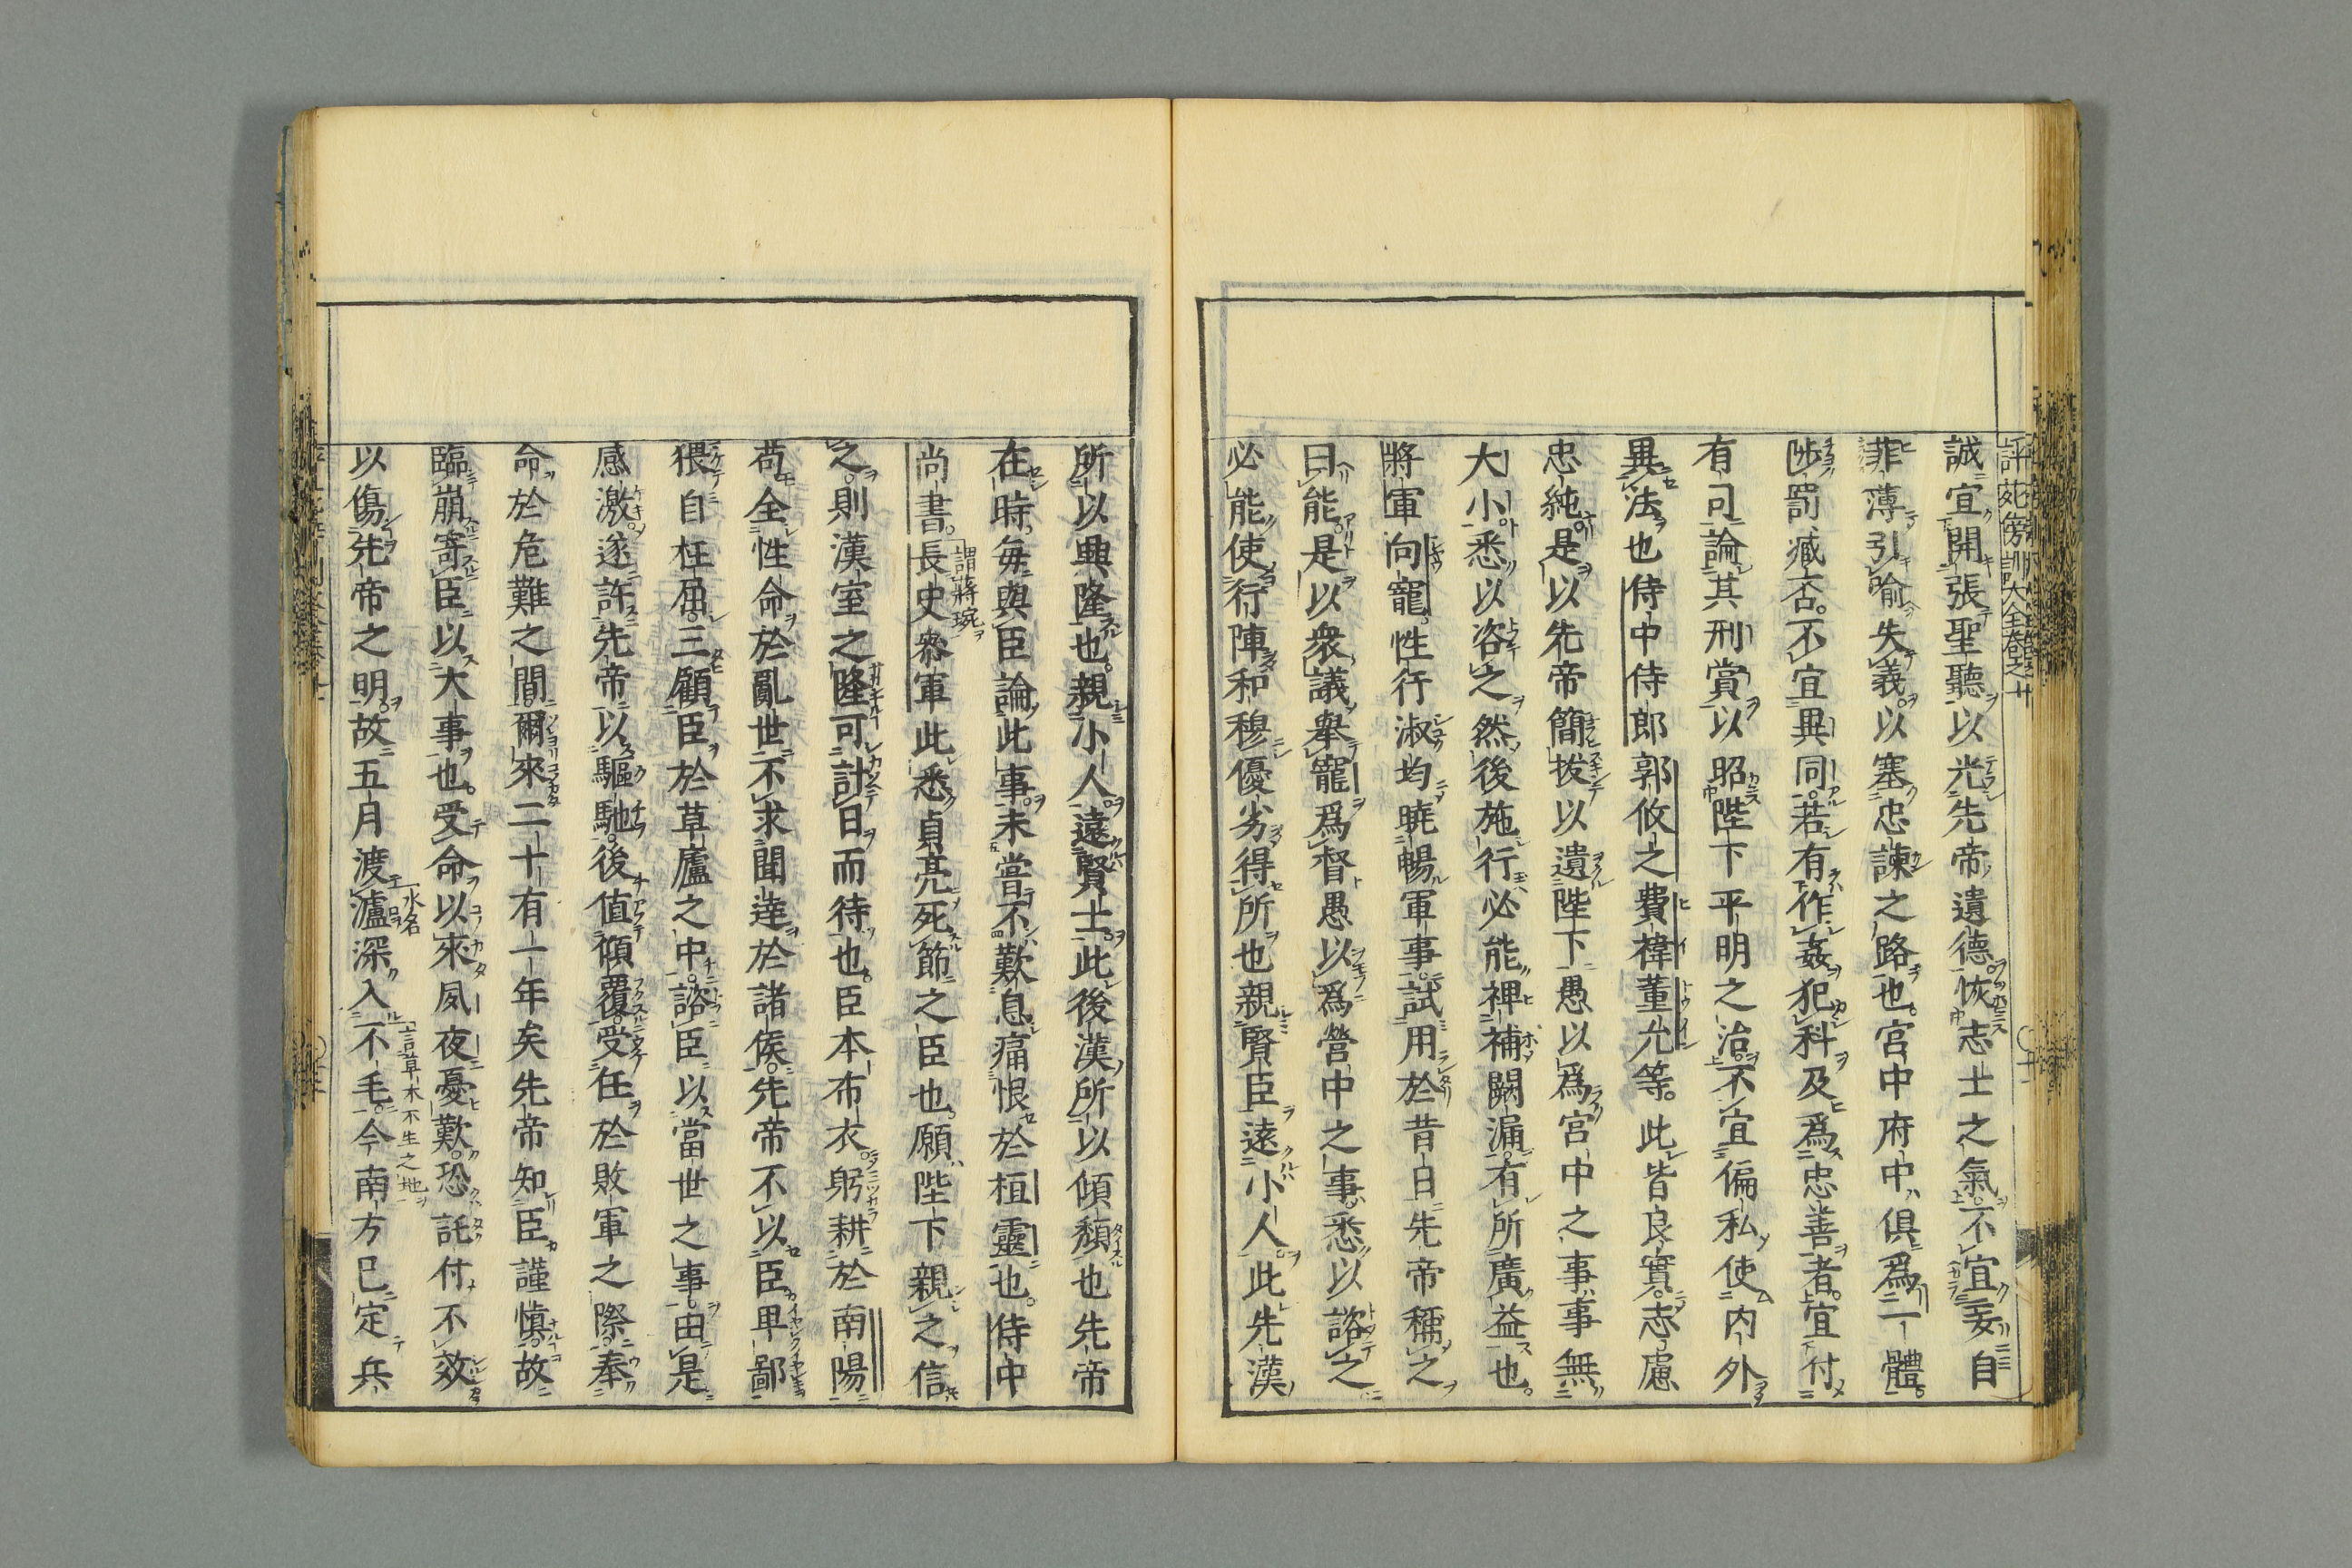 誠宜開張聖聽以光先帝遺德恢志士之氣不宜妄自
菲薄引喩失義以塞忠諫之路也宮中府中俱爲一體
陟罰臧否不宜異同若有作姦犯科及爲忠善者宜付
有司論其刑賞以昭陛下平明之治不宜偏私使内外
異法也侍中侍郎郭攸之費禕董允等此皆良實志慮
忠純是以先帝簡拔以遺陛下愚以爲宮中之事事無
大小悉以咨之然後施行必能裨補闕漏有所廣益也
將軍向寵性行淑均曉暢軍事試用於昔日先帝稱之
曰能是以衆議舉寵爲督愚以爲營中之事悉以諮之
必能使行陣和穆優劣得所也親賢臣遠小人此先漢
所以興隆也親小人遠賢士此後漢所以傾頽也先帝
在時每與臣論此事未嘗不歎息痛恨於桓靈也侍中
尚書長史謂蔣琬參軍此悉貞亮死節之臣也願陛下親之信
之則漢室之隆可計日而待也臣本布衣躬耕於南陽
苟全性命於亂世不求聞達於諸侯先帝不以臣卑鄙
猥自枉屈三顧臣於草廬之中諮臣以當世之事由是
感激遂許先帝以驅馳後值傾覆受任於敗軍之際奉
命於危難之間爾來二十有一年矣先帝知臣謹愼故
臨崩寄臣以大事也受命以來夙夜憂歎恐託付不效
以傷先帝之明故五月渡瀘水名深入不毛言草木不生之地今南方已定兵